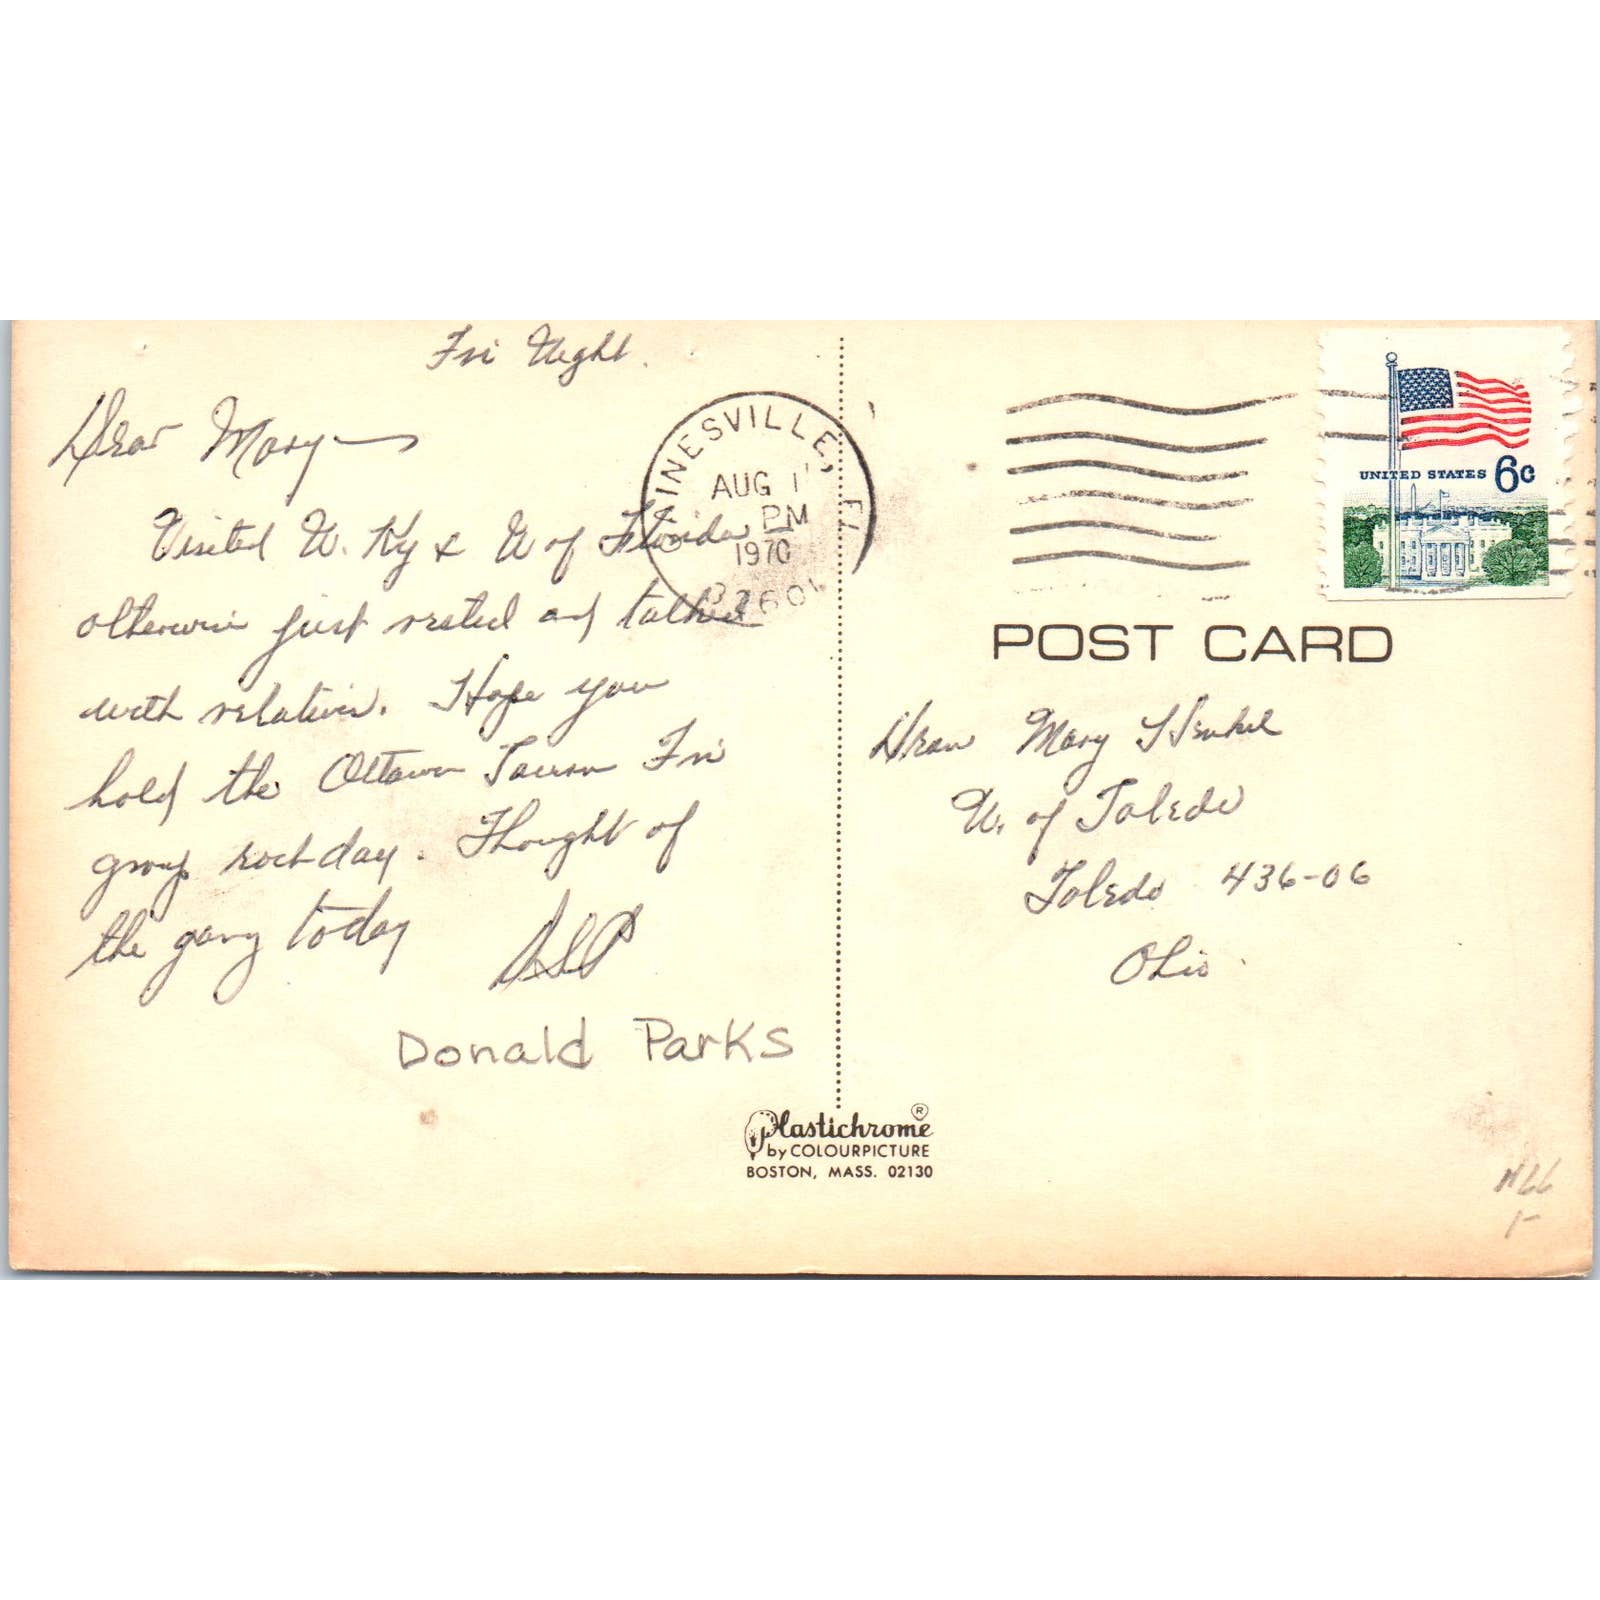 Fri Night.
Dear Mary
Visited U. Ky & U of Florida
otherwise just rested and talked
with relatives. Hope you
hold the Ottawa Tavern Fri
group each day. Thought of
the gang today
DLP
Donald Parks
GAINESVILLE, FL
AUG 1
PM
1970
32601
UNITED STATES 6c
POST CARD
Dean Mary Henkel
U. of Toledo
Toledo 436-06
Ohio
Plastichrome ®
by COLOURPICTURE
BOSTON, MASS. 02130